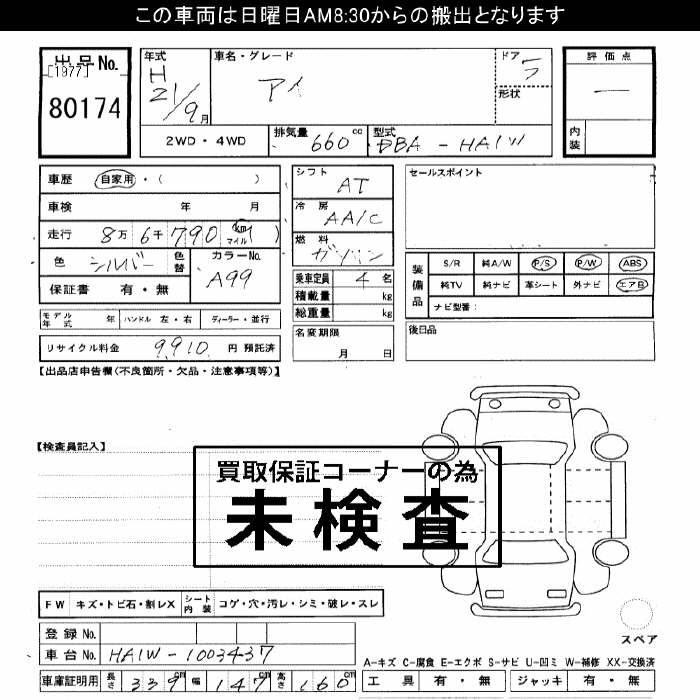 この車両は日曜日AM8:30からの搬出となります
出品No. [1977] 80174
年式 H 21/9月
車名・グレード アイ
ドア 5 形状
評価点 ー
内装
2WD・4WD 排気量 660cc 型式 DBA-HA1W
車歴 自家用・( )
車検 年 月
走行 8万6千790 km マイル ( )
色 シルバー 色替 カラーNo. A99
保証書 有・無
シフト AT
冷房 AA/C
燃料 ガソリン
乗車定員 4名
積載量 kg
総重量 kg
名変期限 月 日
セールスポイント
装備品 S/R 純A/W P/S P/W ABS
純TV 純ナビ 革シート 外ナビ エアB
ナビ型番:
後日品
モデル年式 年 ハンドル 左・右 ディーラー・並行
リサイクル料金 9,910 円 預託済
【出品店申告欄(不良箇所・欠品・注意事項等)】
【検査員記入】
買取保証コーナーの為
未検査
FW キズ・トビ石・割レX シート内装 コゲ・穴・汚レ・シミ・破レ・スレ
スペア
登録No.
車台No. HA1W-1003437
A-キズ C-腐食 E-エクボ S-サビ U-凹ミ W-補修 XX-交換済
車庫証明用 長さ 339cm 幅 147cm 高さ 160cm
工具 有・無 ジャッキ 有・無